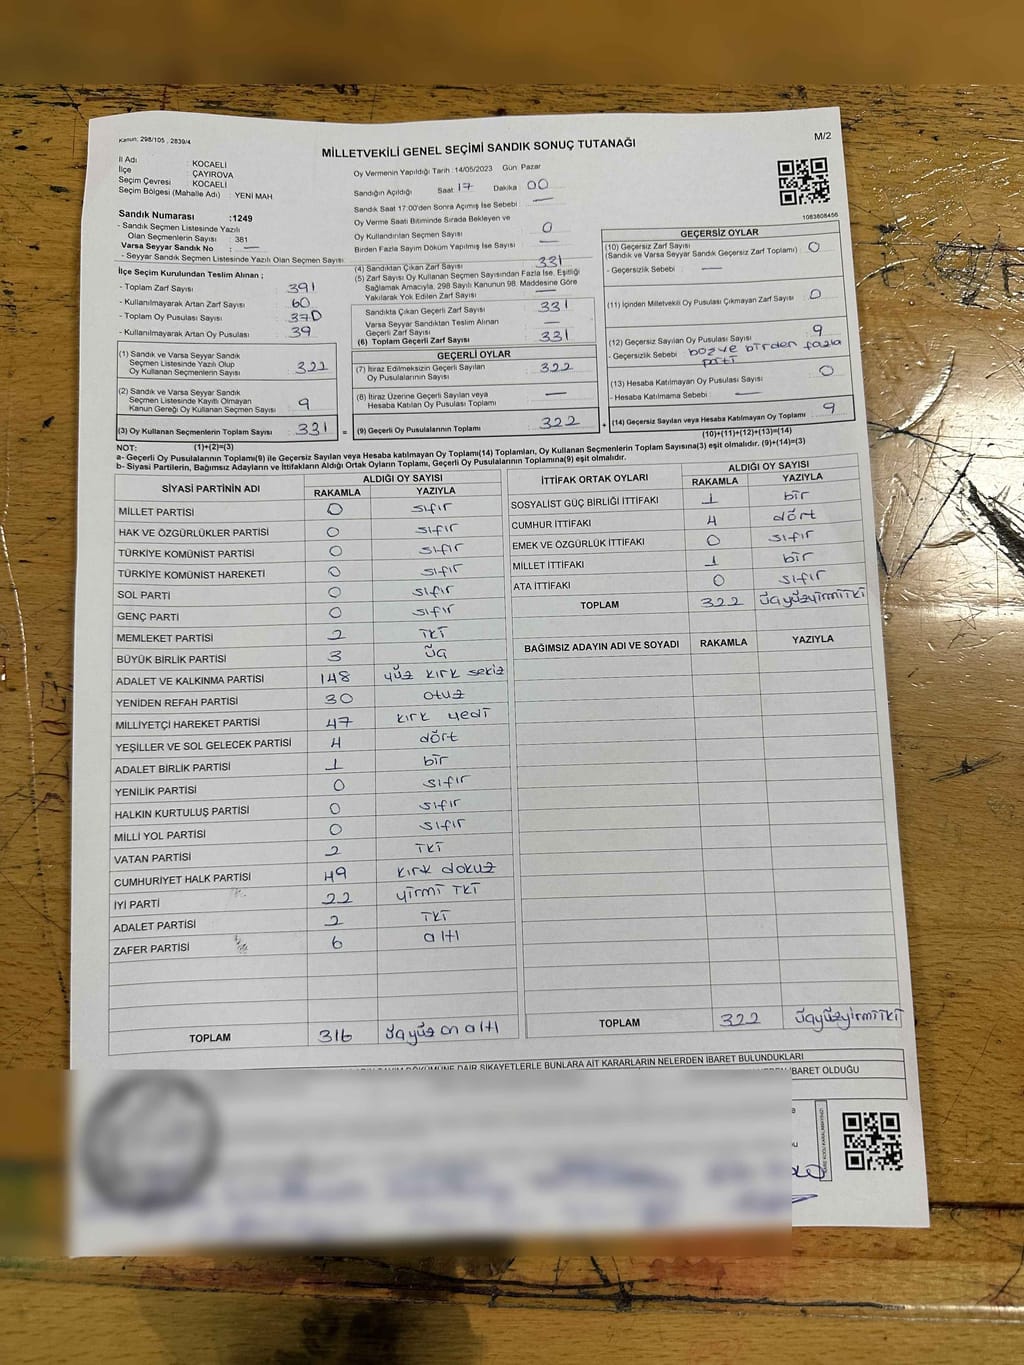 Kanun: 298/105 , 2839/4
MİLLETVEKİLİ GENEL SEÇİMİ SANDIK SONUÇ TUTANAĞI
M/2
İl Adı : KOCAELİ
İlçe : ÇAYIROVA
Seçim Çevresi : KOCAELİ
Seçim Bölgesi (Mahalle Adı) : YENİ MAH
Sandık Numarası :1249
- Sandık Seçmen Listesinde Yazılı
Olan Seçmenlerin Sayısı : 381
Varsa Seyyar Sandık No : —
- Seyyar Sandık Seçmen Listesinde Yazılı Olan Seçmen Sayısı
İlçe Seçim Kurulundan Teslim Alınan ;
- Toplam Zarf Sayısı : 391
- Kullanılmayarak Artan Zarf Sayısı : 60
- Toplam Oy Pusulası Sayısı : 370
- Kullanılmayarak Artan Oy Pusulası : 39
(1) Sandık ve Varsa Seyyar Sandık
Seçmen Listesinde Yazılı Olup
Oy Kullanan Seçmenlerin Sayısı : 322
(2) Sandık ve Varsa Seyyar Sandık
Seçmen Listesinde Kayıtlı Olmayan
Kanun Gereği Oy Kullanan Seçmen Sayısı : 9
(3) Oy Kullanan Seçmenlerin Toplam Sayısı : 331
Oy Vermenin Yapıldığı Tarih :14/05/2023 Gün Pazar
Sandığın Açıldığı Saat 17 Dakika : 00
Sandık Saat 17:00'den Sonra Açılmış İse Sebebi : —
Oy Verme Saati Bitiminde Sırada Bekleyen ve
Oy Kullandırılan Seçmen Sayısı : 0
Birden Fazla Sayım Döküm Yapılmış İse Sayısı : —
(4) Sandıktan Çıkan Zarf Sayısı : 331
(5) Zarf Sayısı Oy Kullanan Seçmen Sayısından Fazla İse, Eşitliği
Sağlamak Amacıyla, 298 Sayılı Kanunun 98. Maddesine Göre
Yakılarak Yok Edilen Zarf Sayısı : —
Sandıkta Çıkan Geçerli Zarf Sayısı : 331
Varsa Seyyar Sandıktan Teslim Alınan
Geçerli Zarf Sayısı : —
(6) Toplam Geçerli Zarf Sayısı : 331
GEÇERLİ OYLAR
(7) İtiraz Edilmeksizin Geçerli Sayılan
Oy Pusulalarının Sayısı : 322
(8) İtiraz Üzerine Geçerli Sayılan veya
Hesaba Katılan Oy Pusulası Toplamı : —
= (9) Geçerli Oy Pusulalarının Toplamı : 322
1083808456
GEÇERSİZ OYLAR
(10) Geçersiz Zarf Sayısı : 0
(Sandık ve Varsa Seyyar Sandık Geçersiz Zarf Toplamı)
- Geçersizlik Sebebi : —
(11) İçinden Milletvekili Oy Pusulası Çıkmayan Zarf Sayısı : 0
(12) Geçersiz Sayılan Oy Pusulası Sayısı : 9
- Geçersizlik Sebebi : boş ve birden fazla
parti
(13) Hesaba Katılmayan Oy Pusulası Sayısı : 0
- Hesaba Katılmama Sebebi : —
+ (14) Geçersiz Sayılan veya Hesaba Katılmayan Oy Toplamı : 9
NOT: (1)+(2)=(3)
(10)+(11)+(12)+(13)=(14)
a- Geçerli Oy Pusulalarının Toplamı(9) ile Geçersiz Sayılan veya Hesaba katılmayan Oy Toplamı(14) Toplamları, Oy Kullanan Seçmenlerin Toplam Sayısına(3) eşit olmalıdır. (9)+(14)=(3)
b- Siyasi Partilerin, Bağımsız Adayların ve İttifakların Aldığı Ortak Oyların Toplamı, Geçerli Oy Pusulalarının Toplamına(9) eşit olmalıdır.
SİYASİ PARTİNİN ADI ALDIĞI OY SAYISI
RAKAMLA YAZIYLA
MİLLET PARTİSİ 0 sıfır
HAK VE ÖZGÜRLÜKLER PARTİSİ 0 sıfır
TÜRKİYE KOMÜNİST PARTİSİ 0 sıfır
TÜRKİYE KOMÜNİST HAREKETİ 0 sıfır
SOL PARTİ 0 sıfır
GENÇ PARTİ 0 sıfır
MEMLEKET PARTİSİ 2 iki
BÜYÜK BİRLİK PARTİSİ 3 üç
ADALET VE KALKINMA PARTİSİ 148 yüz kırk sekiz
YENİDEN REFAH PARTİSİ 30 otuz
MİLLİYETÇİ HAREKET PARTİSİ 47 kırk yedi
YEŞİLLER VE SOL GELECEK PARTİSİ 4 dört
ADALET BİRLİK PARTİSİ 1 bir
YENİLİK PARTİSİ 0 sıfır
HALKIN KURTULUŞ PARTİSİ 0 sıfır
MİLLİ YOL PARTİSİ 0 sıfır
VATAN PARTİSİ 2 iki
CUMHURİYET HALK PARTİSİ 49 kırk dokuz
İYİ PARTİ 22 yirmi iki
ADALET PARTİSİ 2 iki
ZAFER PARTİSİ 6 altı
TOPLAM 316 üçyüz on altı
İTTİFAK ORTAK OYLARI ALDIĞI OY SAYISI
RAKAMLA YAZIYLA
SOSYALİST GÜÇ BİRLİĞİ İTTİFAKI 1 bir
CUMHUR İTTİFAKI 4 dört
EMEK VE ÖZGÜRLÜK İTTİFAKI 0 sıfır
MİLLET İTTİFAKI 1 bir
ATA İTTİFAKI 0 sıfır
TOPLAM 322 üçyüzyirmiiki
BAĞIMSIZ ADAYIN ADI VE SOYADI RAKAMLA YAZIYLA
TOPLAM 322 üçyüzyirmiiki
DÖKÜMÜNE DAİR ŞİKAYETLERLE BUNLARA AİT KARARLARIN NELERDEN İBARET BULUNDUKLARI
İBARET OLDUĞU